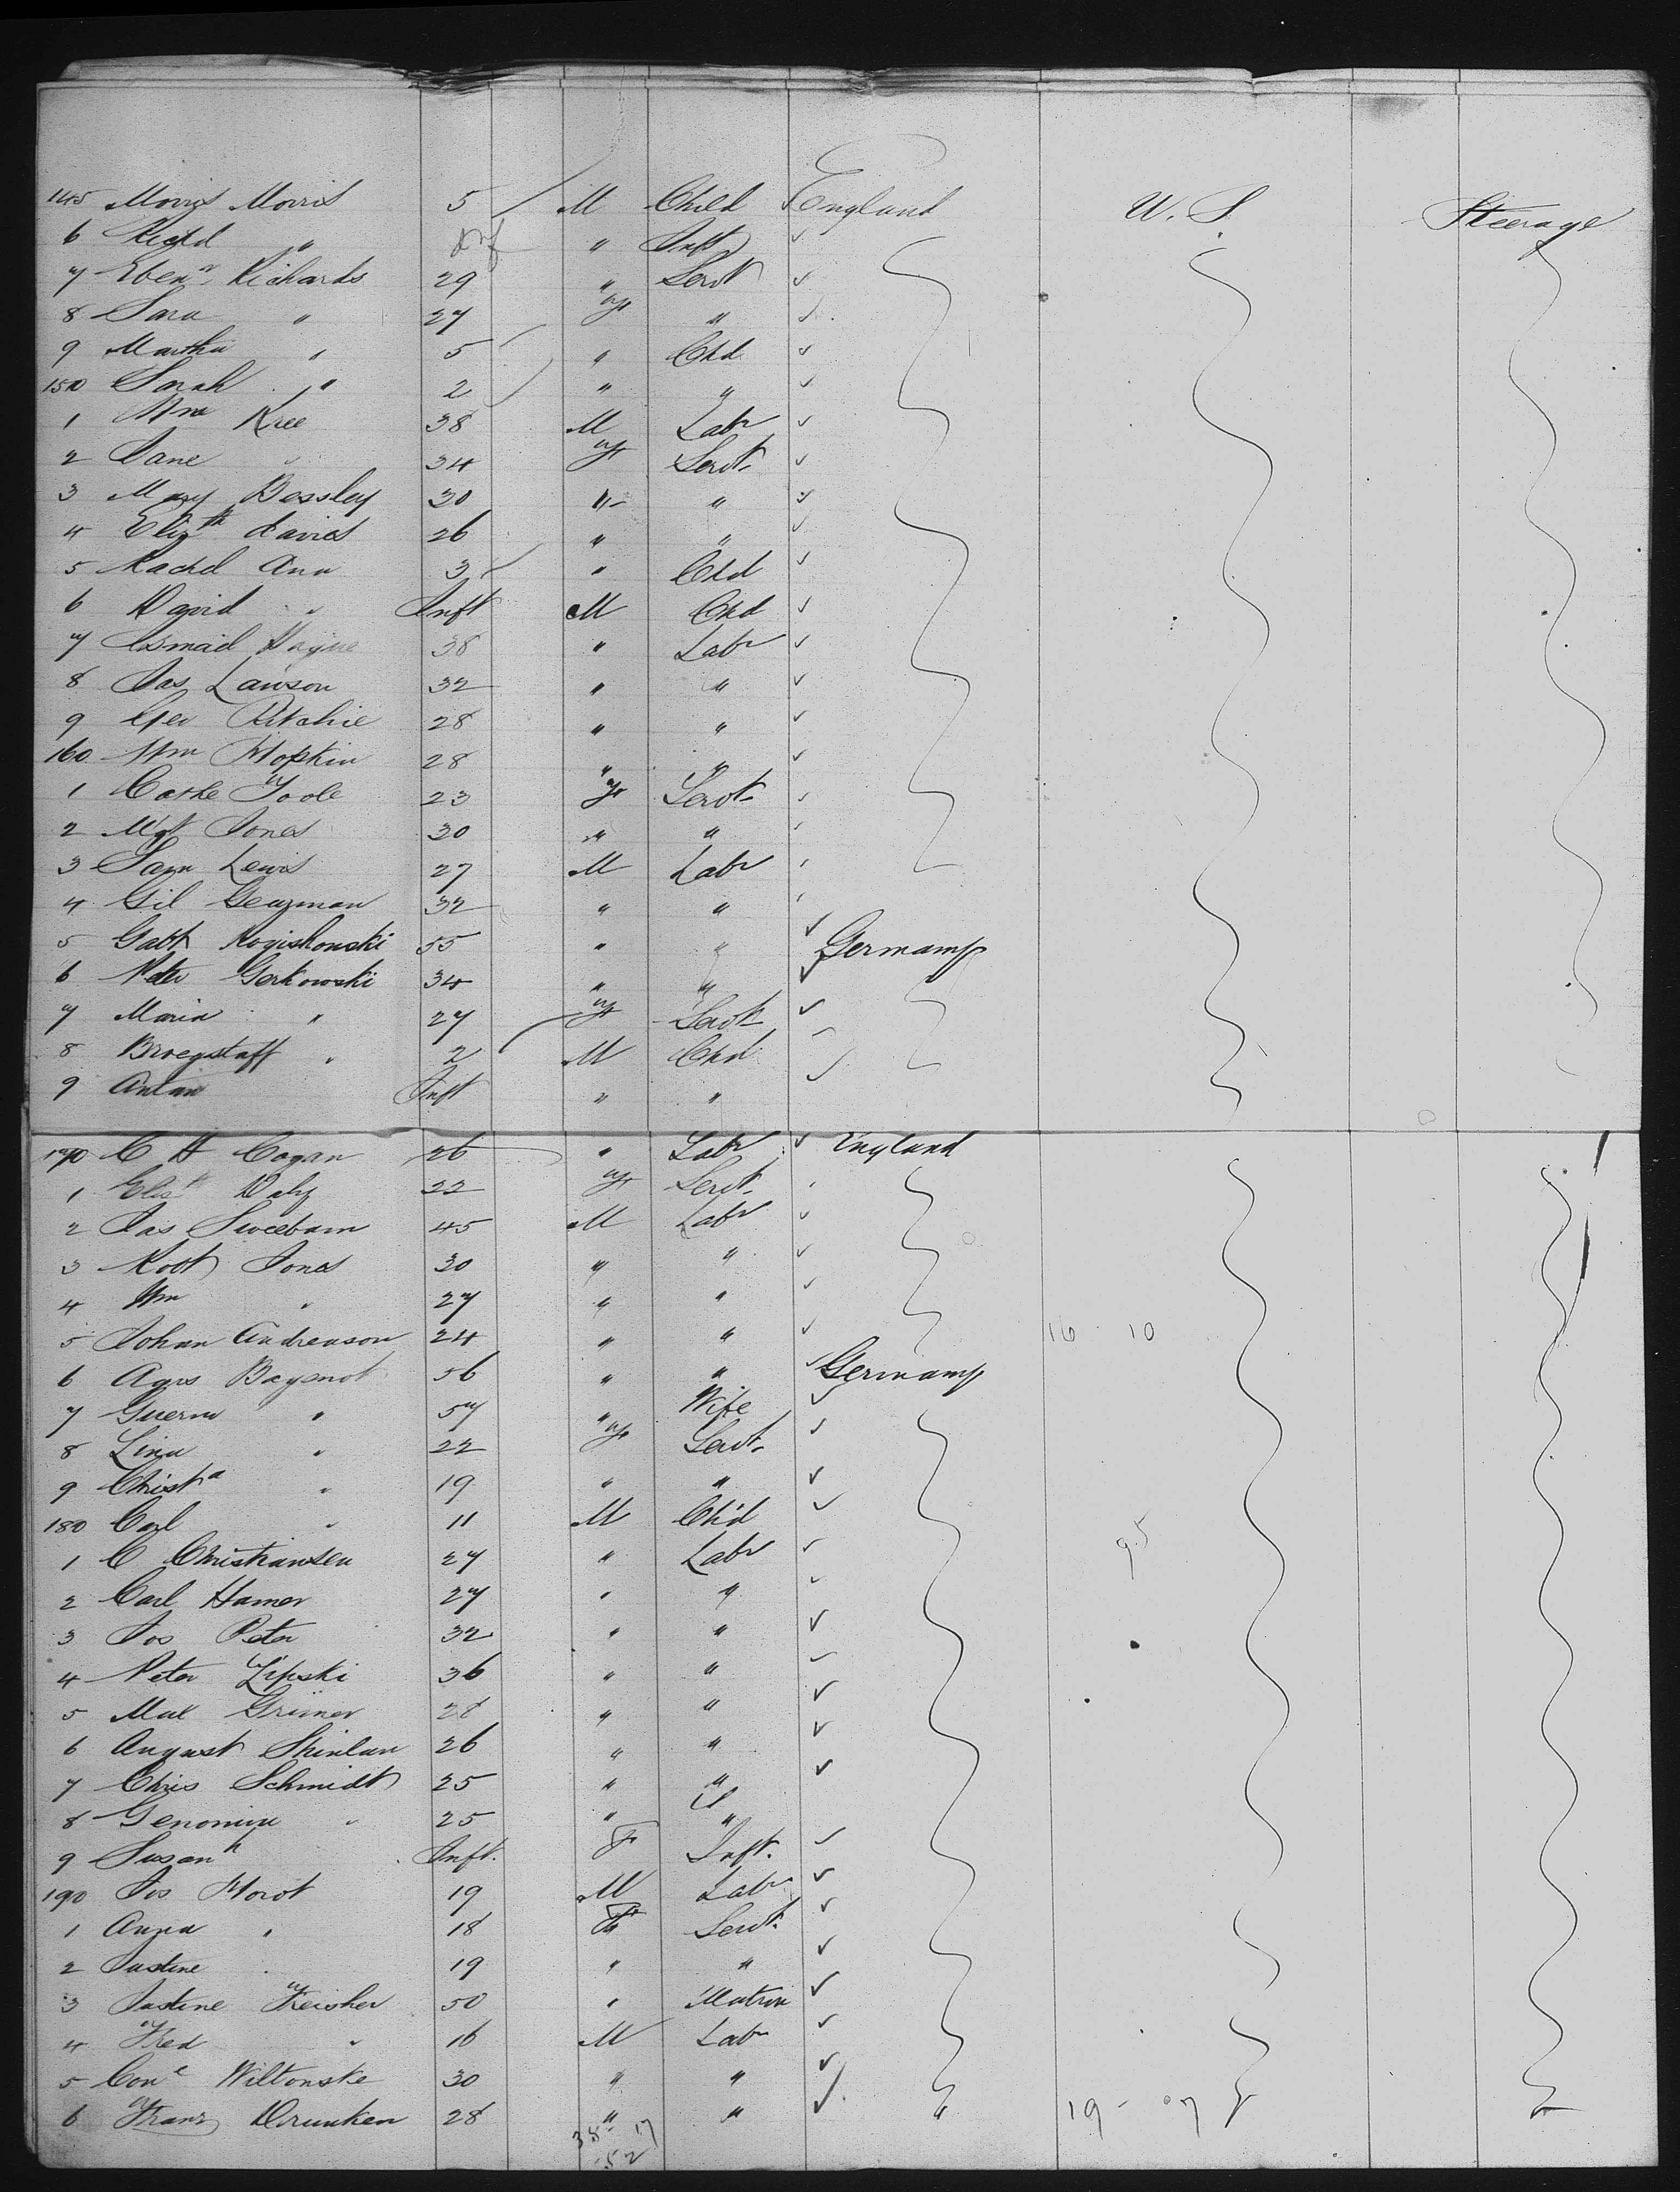 145 Morris Morris 5 M Child England U. S. Steerage
6 Richd " Inf " Inft
7 Ebenr Richards 29 " Servt
8 Sara " 27 F "
9 Martha " 5 " Chd
150 Sarah " 2 " "
1 Wm Kree 38 M Labr
2 Jane " 34 F Servt
3 Mary Bossley 30 " "
4 Elizth Davies 26 " "
5 Rachel Ann 3 " Chd
6 David " Inft M Chd
7 38 " Labr
8 Jas Lawson 32 " "
9 Geo Ritchie 28 " "
160 Wm Hopkin 28 " "
1 Cathe Toole 23 F Servt
2 Mgt Jones 30 " "
3 Sam Lewis 27 M Labr
4 Gil 32 " "
5 Gabt 55 " " Germany
6 Peter Gorkowski 34 " "
7 Maria " 27 F Servt
8 " 2 M Chd
9 Antan Inft " "
170 C H Cogan 26 " Labr England
1 Elisth Daly 22 F Servt
2 Jas 45 M Labr
3 Robt Jones 30 " "
4 Wm " 27 " "
5 Johan Andreason 24 " " 16 10
6 56 " " Germany
7 " 57 " Wife
8 Lina " 22 F Servt
9 Christa " 19 " "
180 Carl " 11 M Ch'd
1 C Christiansen 27 " Labr 95
2 Carl Hamer 27 " "
3 Jos Peter 32 " "
4 Peter Zipski 36 " "
5 Max Grimer 28 " "
6 August 26 " "
7 Chris Schmidt 25 " "
8 " 25 " "
9 Susanh Inft. F Inft.
190 Jos Horot 19 M Labr
1 Anna " 18 F Servt
2 Justine " 19 " "
3 Justine Fleisher 50 " Matron
4 Fred " 16 M Labr
5 Wiltonske 30 " "
6 Franz Drunken 28 " " " 19 - 07
35 - 17
52